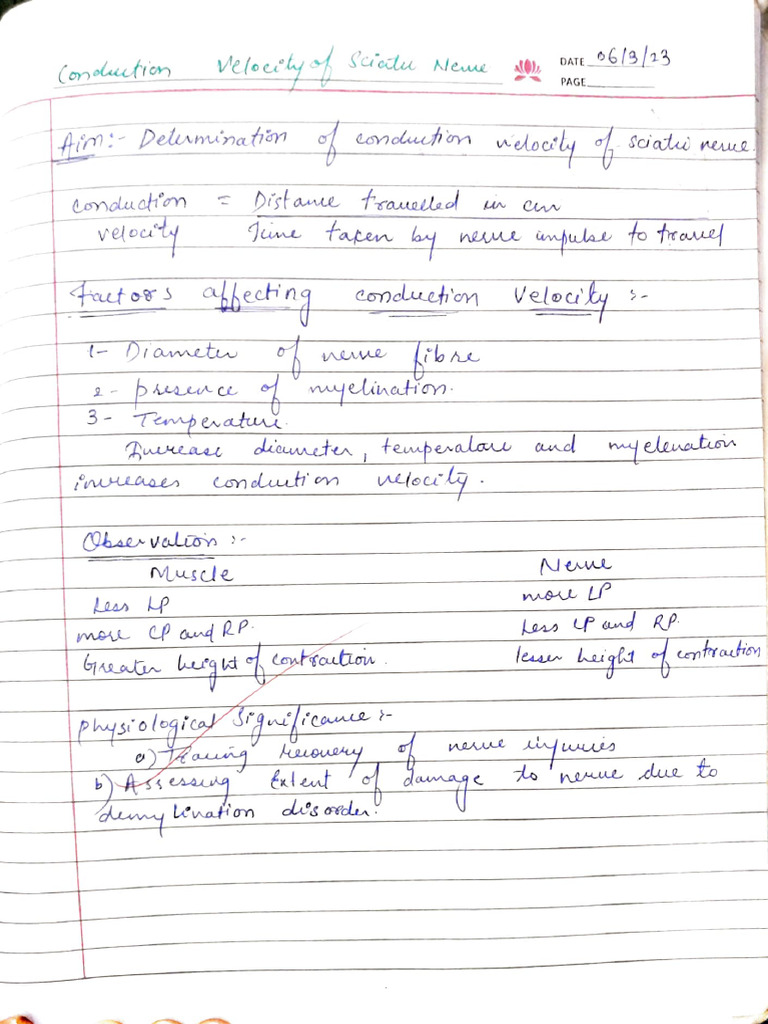 Conduction Velocity of Sciatic Nerve
DATE 06/3/23
PAGE
Aim:- Determination of conduction velocity of sciatic nerve.
conduction = Distance travelled in cm
velocity Time taken by nerve impulse to travel
Factors affecting conduction velocity :-
1- Diameter of nerve fibre
2- presence of myelination.
3- Temperature.
Increase diameter, temperature and myelenation
increases conduction velocity.
Observation :-
Muscle Nerve
Less LP more LP
more CP and RP. Less CP and RP.
Greater height of contraction. lesser height of contraction
Physiological significance :-
a) Tracing recovery of nerve injuries
b) Assessing Extent of damage to nerve due to
demylination disorder.